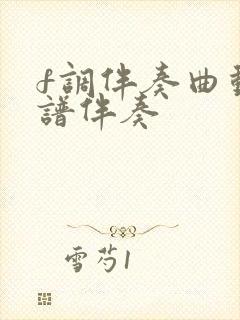 f調伴奏曲
譜伴奏
雪芍1